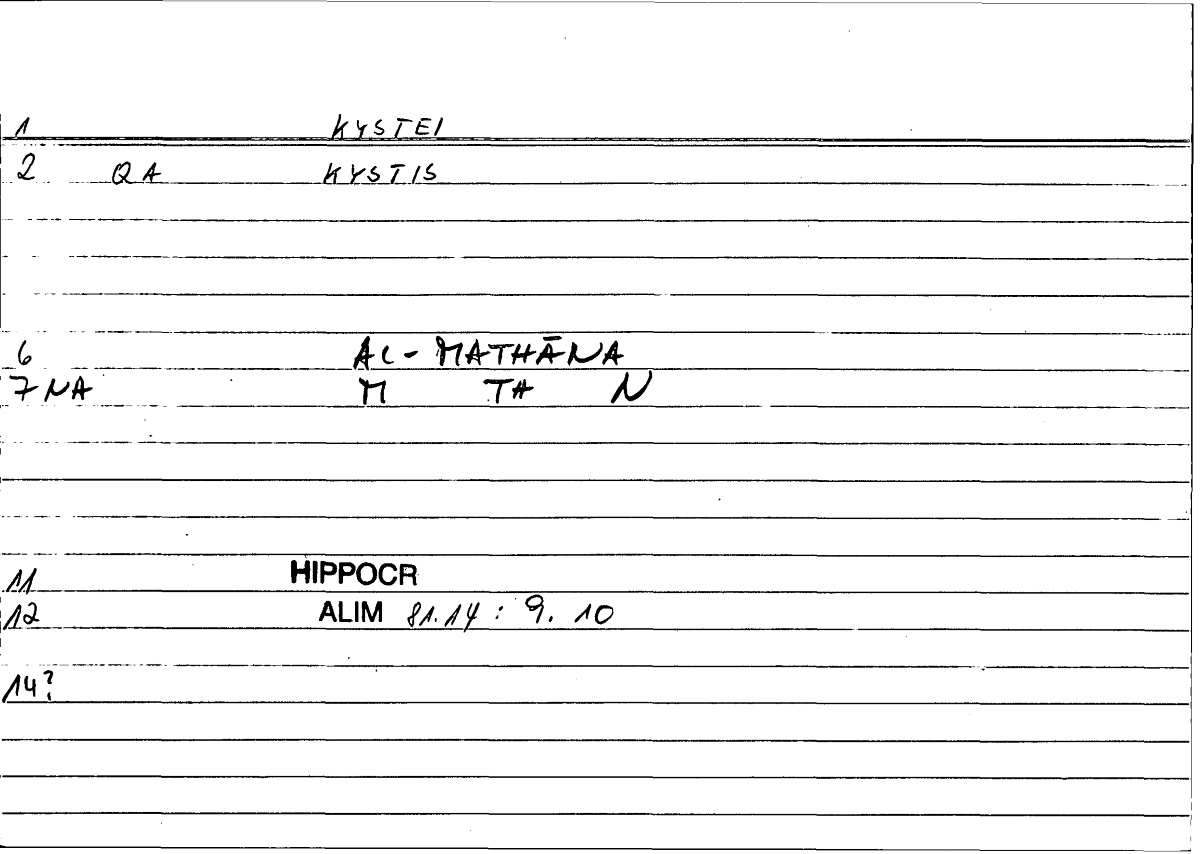 1 KYSTEI
2 QA KYSTIS
6 AL-MATHĀNA
7 NA M TH N
11 HIPPOCR
12 ALIM 81.14 : 9. 10
14?